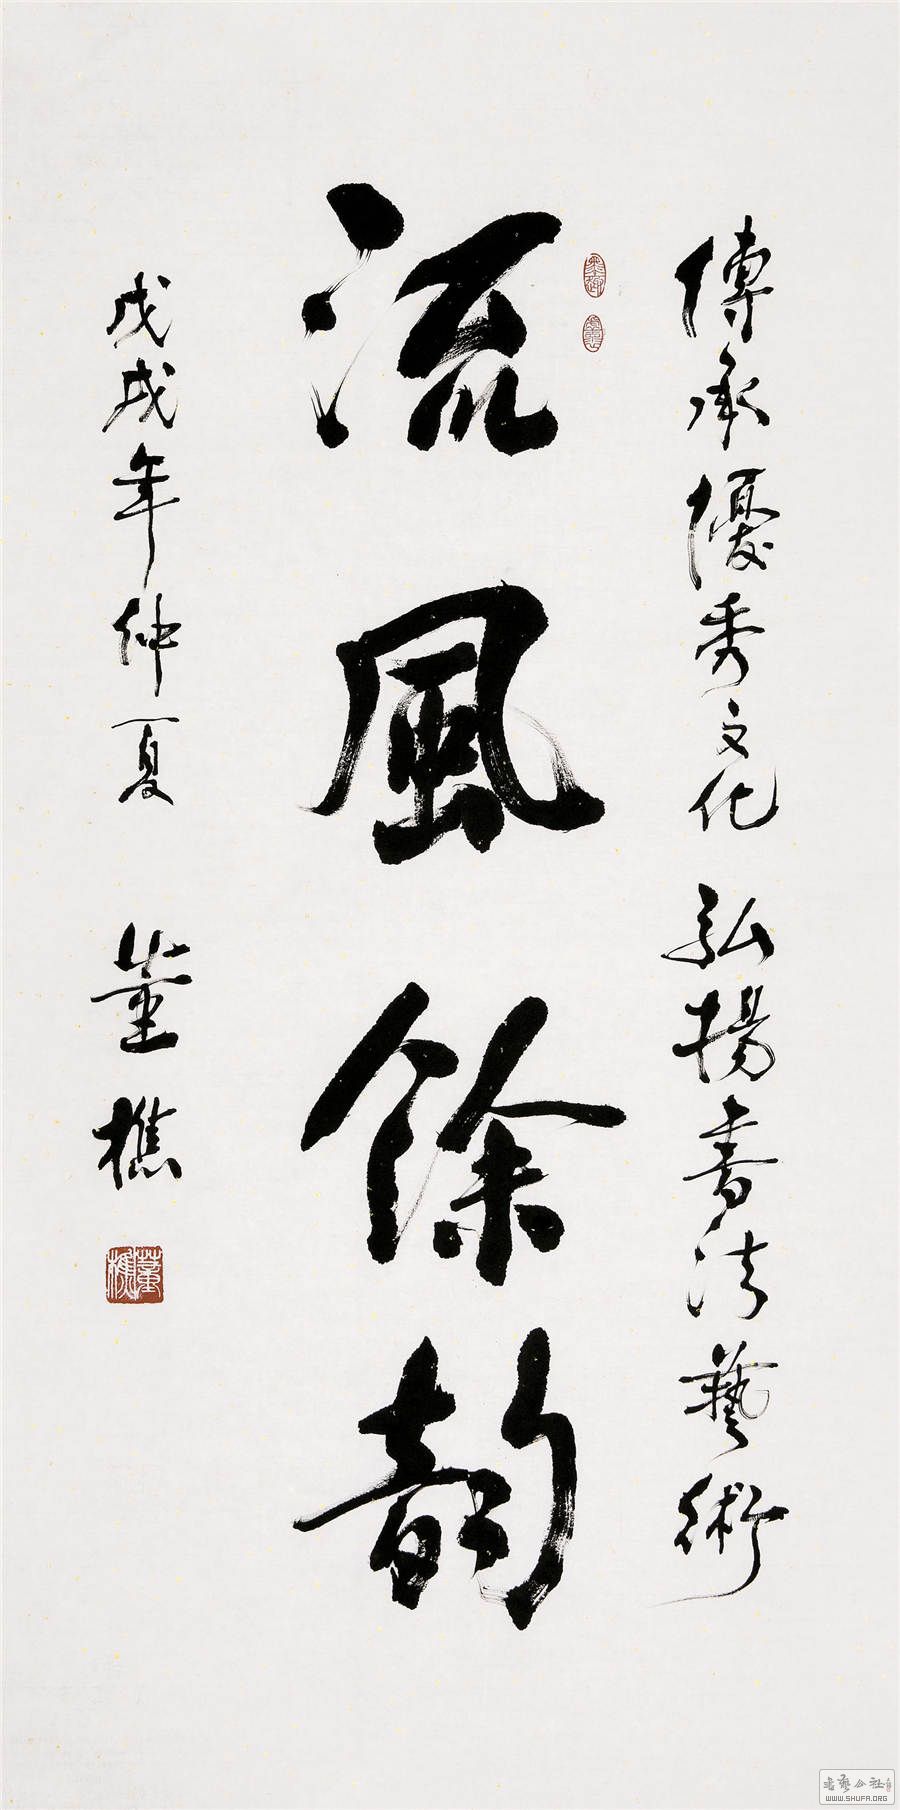 傳承優秀文化 弘揚書法藝術
流風餘韵
戊戌年仲夏 董樵
董樵
WWW.SHUFA.ORG